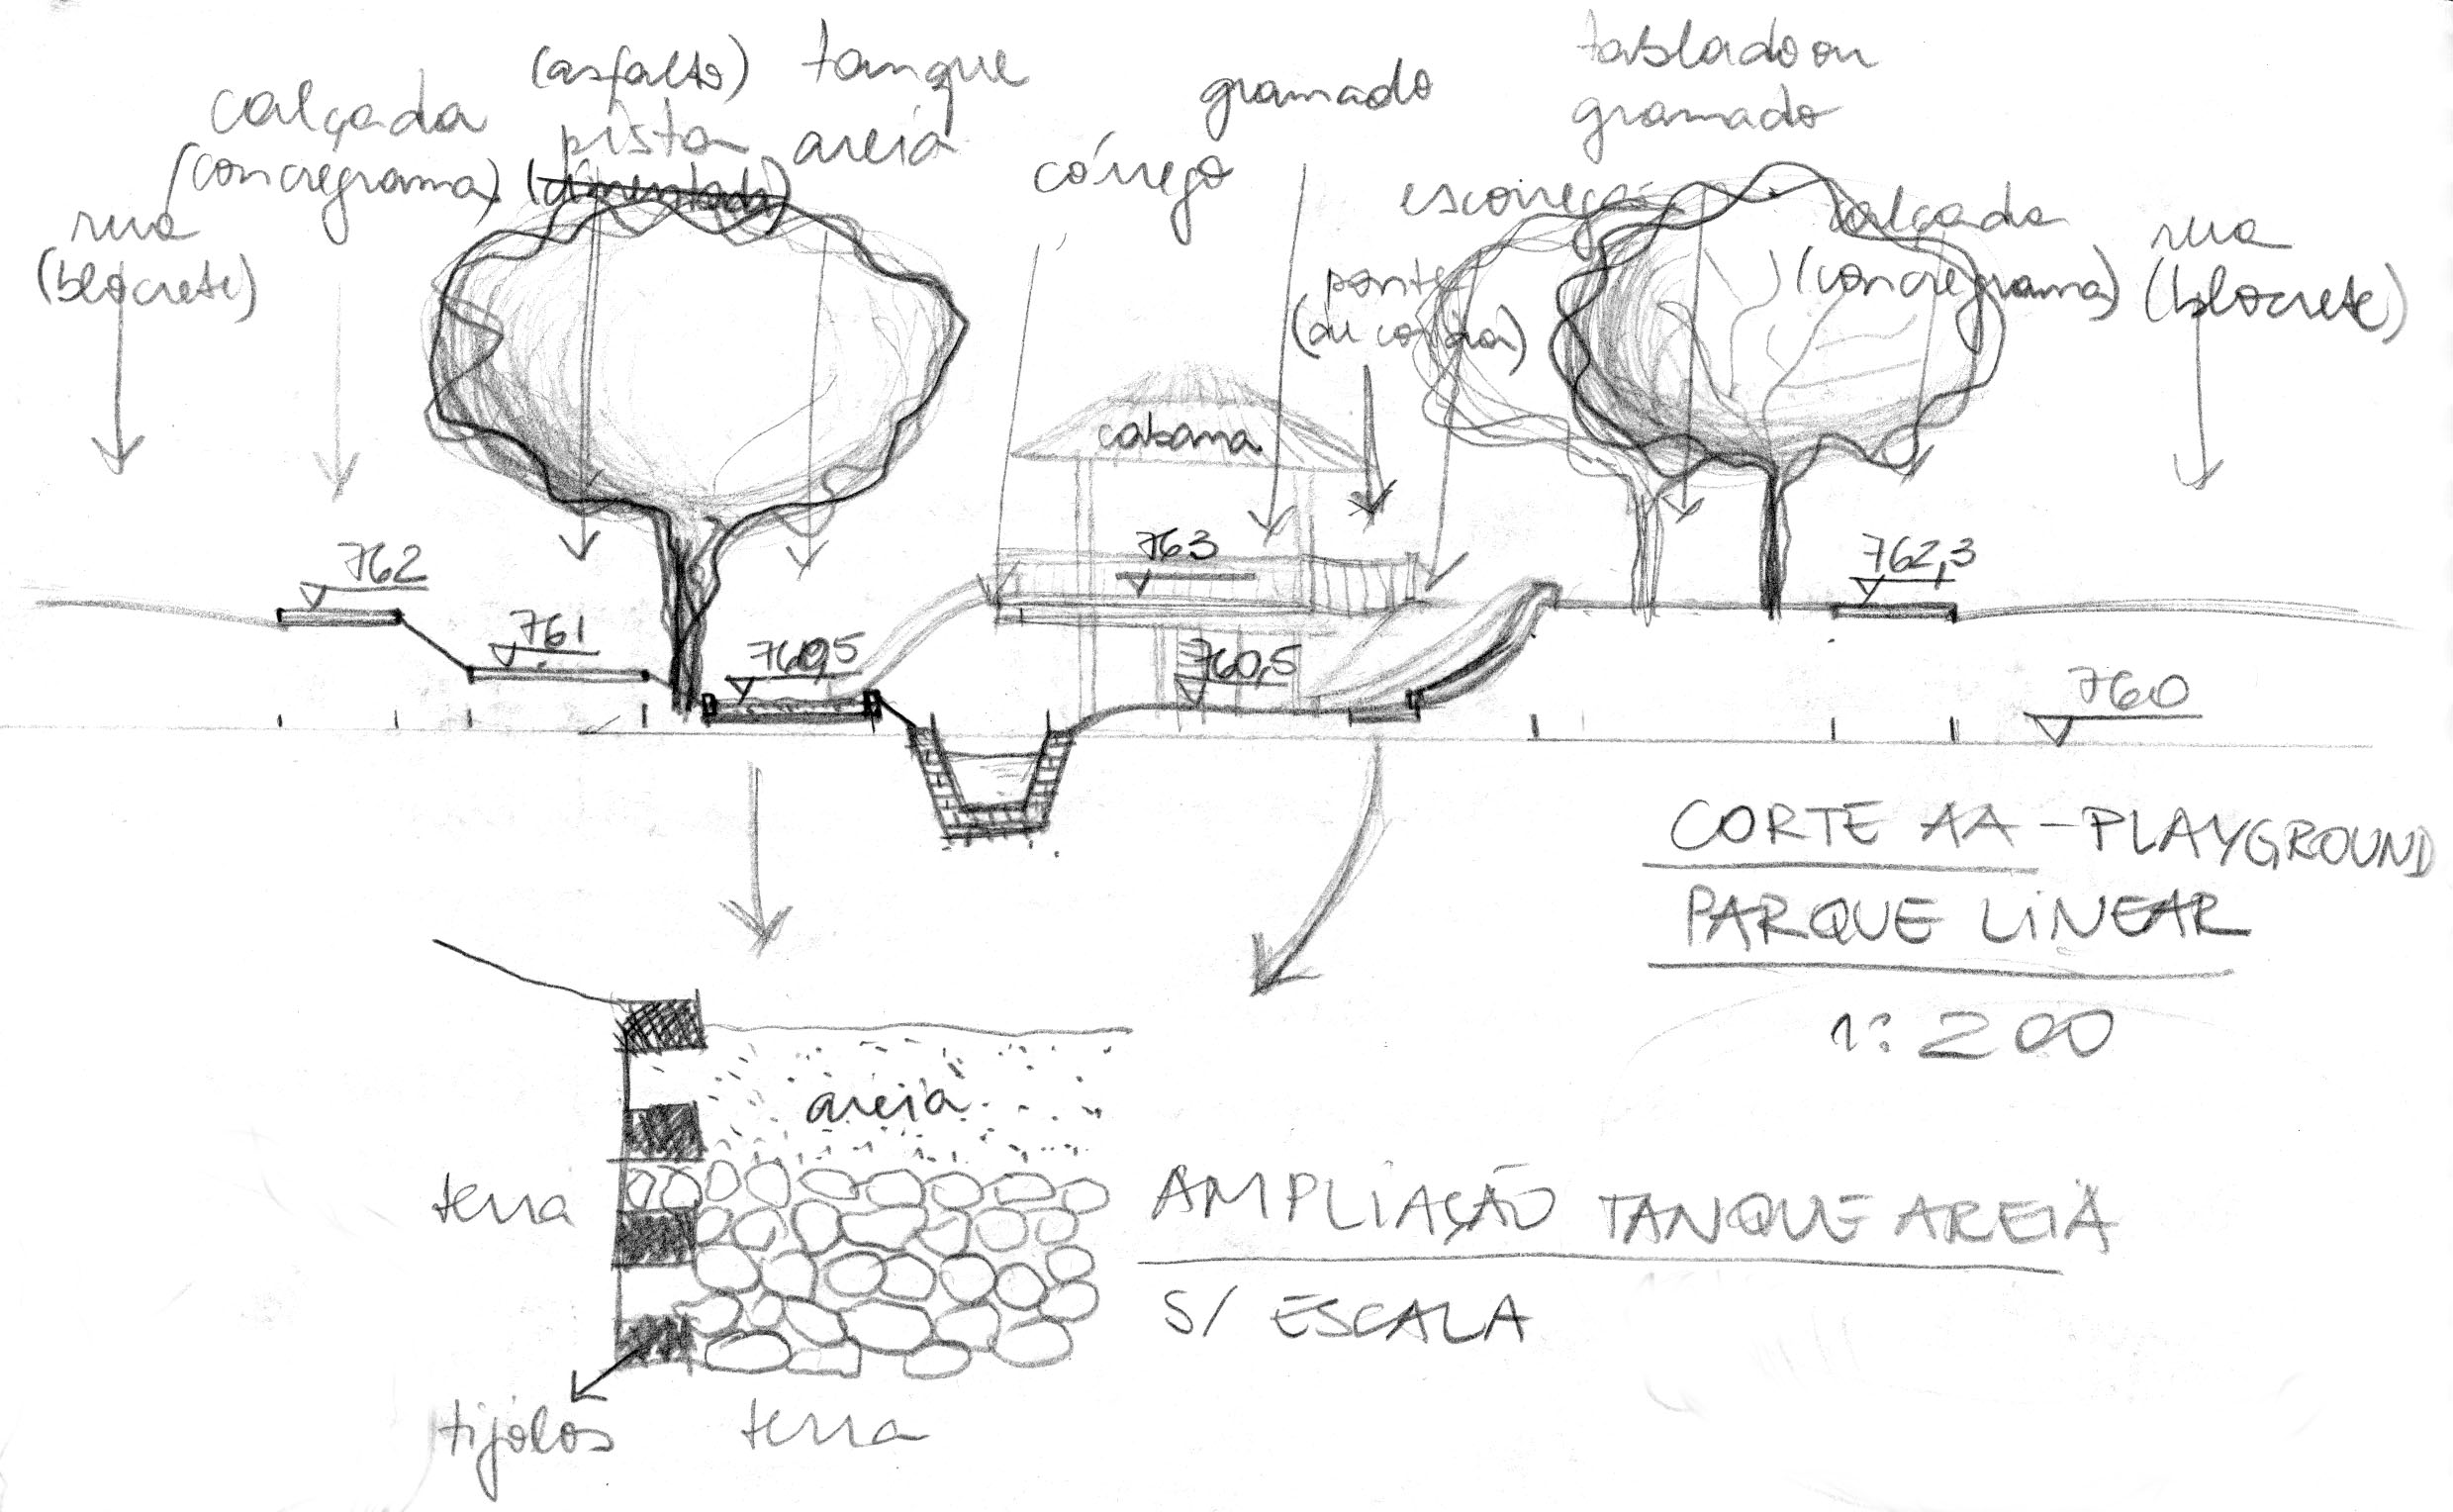 rua
(blocrete)
calçada
(concregrama)
(asfalto)
pista
(cimentada)
tanque
areia
córrego
gramado
ponte
(de corda)
escorrega
tablado ou
gramado
calçada
(concregrama)
rua
(blocrete)
cabana
762
761
760,5
763
760,5
762,3
760
CORTE AA - PLAYGROUND
PARQUE LINEAR
1:200
areia
terra
tijolos
terra
AMPLIAÇÃO TANQUE AREIA
S/ ESCALA